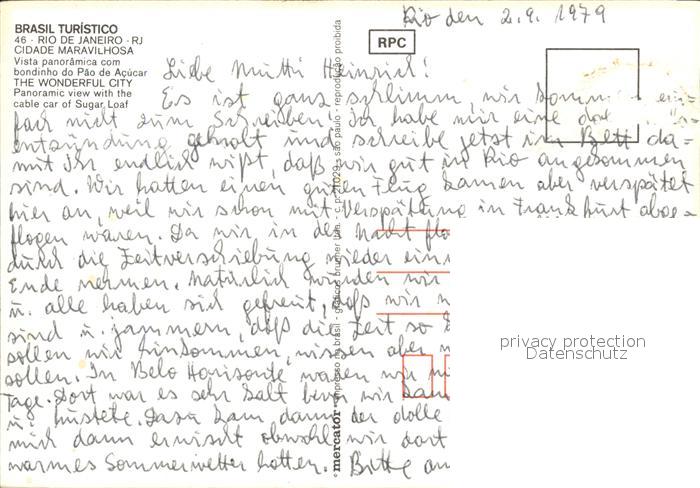 BRASIL TURÍSTICO
46 - RIO DE JANEIRO - RJ
CIDADE MARAVILHOSA
Vista panorâmica com
bondinho do Pão de Açúcar
THE WONDERFUL CITY
Panoramic view with the
cable car of Sugar Loaf
RPC
Rio den 2.9. 1979
Liebe Mutti Heinrich!
Es ist ganz schlimm, wir kommen ein=
fach nicht zum Schreiben. Ich habe mir eine
entzündung geholt und schreibe jetzt im Bett da=
mit Ihr endlich wißt, daß wir gut in Rio angekommen
sind. Wir hatten einen guten Flug kamen aber verspätet
hier an, weil wir schon mit Verspätung in Frankfurt abge=
flogen waren. Da wir in der Nacht flo
durch die Zeitverschiebung wieder ein
Ende nehmen. Natürlich wurden wir
u. alle haben sich gefreut, daß wir
sind u. jammern, daß die Zeit so
sollen wir hinkommen, wissen aber
sollen. In Belo Horizonte waren wir
Tage. Dort war es sehr kalt
u. hustete. Dazu kam dann der dolle
mich dann erwischt obwohl wir dort
warmes Sommerwetter hatten. Bitte an
mercator impresso no brasil - gráficos brunner ltda. - são paulo - reprodução proibida
privacy protection
Datenschutz